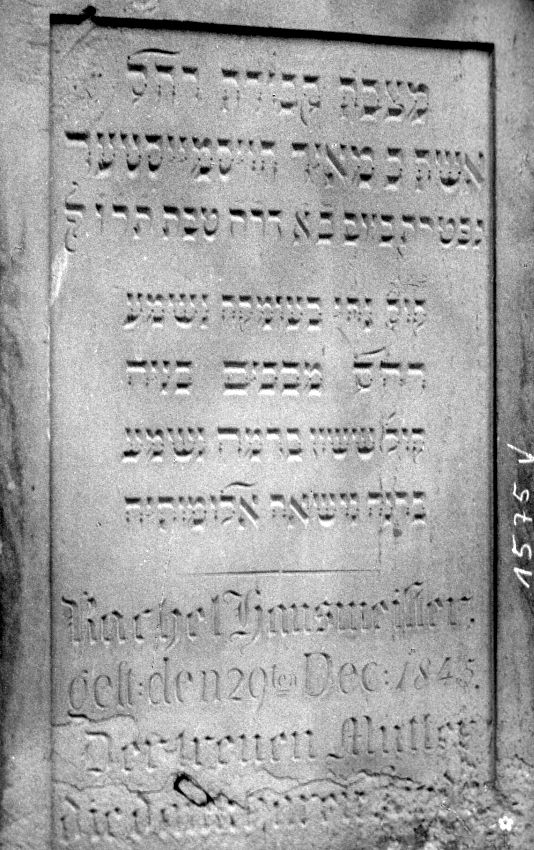 מצבת קבורת רחל
אשת כ מאיר הויסמייסטער
נפטרת ביום ב א דרח טבת תרו ל
קול נהי בעומקה נשמע
רחל מבכים בניה
קול ששון ברמה נשמע
ברנה נושאת אלומותיה
Rachel Hausmeister.
gest: den 29ten Dec: 1845.
Der treuen Mutter
die
1575 V